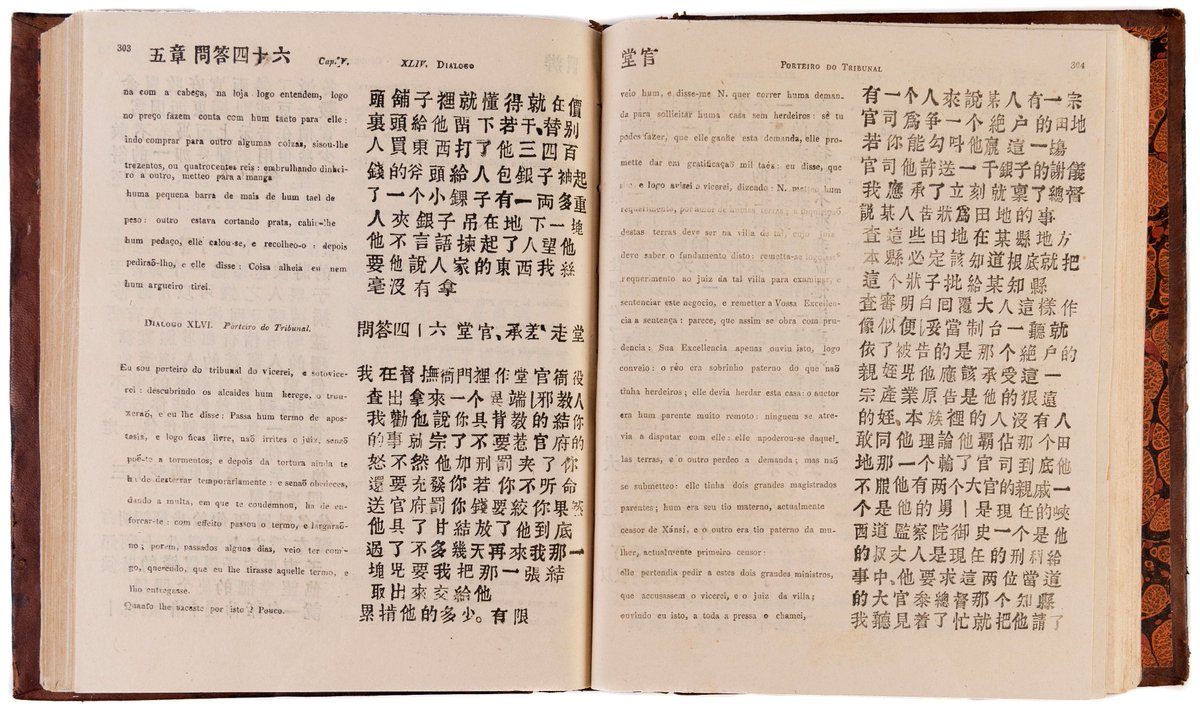 303
五章 問答四十六
Cap. V.
XLIV. DIALOGO
na com a cabeça, na loja logo entendem, logo
no preço fazem conta com hum tacto para elle:
indo comprar para outro algumas coizas, sisou-lhe
trezentos, ou quatrocentos reis: embrulhando dinhei-
ro a outro, metteo para a manga
huma pequena barra de mais de hum tael de
peso: outro estava cortando prata, cahiu-lhe
hum pedaço, elle calou-se, e recolheo-o: depois
pediraõ-lho, e elle disse: Coisa alheia eu nem
hum argueiro tirei.
頭舖子裡就懂得就在價
裏頭給他畱下若干、替别
人買東西打了他三四百
錢的斧頭給人包銀子袖起
了一个小錁子有一兩多重
人夾銀子吊在地下一塊
他不言語揀起了人望他
要他說人家的東西我絲
毫沒有拿
DIALOGO XLVI. Porteiro do Tribunal.
問答四十六 堂官、承差、走堂
Eu sou porteiro do tribunal do vicerei, e sotovice-
rei: descubrindo os alcaides hum herege, o trou-
xeraõ, e eu lhe disse: Passa hum termo de apos-
tasia, e logo ficas livre, naõ irrites o juiz, senaõ
poẽ-te a tormentos; e depois da tortura ainda te
ha de desterrar temporariamente: e senaõ obedeces,
dando a multa, em que te condemnou, ha de en-
forcar-te: com effeito passou o termo, e largaraõ-
no; porém, passados alguns dias, veio ter com-
go, querendo, que eu lhe tirasse aquelle termo, e
lho entregasse.
Quanto lhe sacaste por isto? Pouco.
我在督撫衙門裡作堂官衙役
查出拿來一个異端邪教人
我勸他說你具背教的結你
的事就完了不要惹官府的
怒不然他加刑罰夾了你
還要充發你若你不所命
送官府罰你錢要絞你果然
他具了甘結放了他到底
過了不多幾天再來我那一
塊兒要我把那一張結
取出來交給他
累揹他的多少。有限
堂官
PORTEIRO DO TRIBUNAL
304
veio hum, e disse-me N. quer correr huma deman-
da para sollicitar huma casa sem herdeiros: se tu
podes fazer, que elle ganhe esta demanda, elle pro-
mette dar em gratificaçaõ mil taéz: eu disse, que
e logo avisei o vicerei, dizendo: N. metteo hum
requerimento, por amor de humas terras; a inquiriçaõ
destas terras deve ser na villa de tal, cujo juiz
deve saber o fundamento disto: remetta-se logo este
requerimento ao juiz da tal villa para examinar, e
sentenciar este negocio, e remetter a Vossa Excellen-
cia a sentença: parece, que assim se obra com pru-
dencia: Sua Excellencia apenas ouviu isto, logo
conveio: o réo era sobrinho paterno do que naõ
tinha herdeiros; elle devia herdar esta casa: o auctor
era hum parente muito remoto: ninguem se atre-
via a disputar com elle: elle apoderou-se daquel-
las terras, e o outro perdeo a demanda; mas naõ
se submetteo: elle tinha dois grandes magistrados
parentes; hum era seu tio materno, actualmente
ceasor de Xánsi, e o outro era tio paterno da mu-
lher, actualmente primeiro censor:
elle pertendia pedir a estes dois grandes ministros,
que accusassem o vicerei, e o juiz da villa;
ouvindo eu isto, a toda a pressa o chamei,
有一个人來說某人有一宗
官司爲爭一个絶户的田地
若你能勾呌他贏這一塲
官司他許送一千銀子的謝儀
我應承了立刻就稟了總督
說某人告狀爲田地的事
查這些田地在某縣地方
本縣必定該知道根底就把
這个狀子批給某知縣
查審明白回覆大人這樣作
像似便妥當制台一聽就
依了被告的是那个絶户的
親姪兒他應該承受這一
宗產業原告是他的狠遠
的姪、本族裡的人沒有人
敢同他理論他覇佔那个田
地那一个輸了官司到底他
不服他有两个大官的親戚一
个是他的舅是現任的峽
西道監察院御史一个是他
的叔丈人是現任的刑科給
事中、他要求這兩位當道
的大官叅總督那个知縣
我聽見着了忙就把他請了